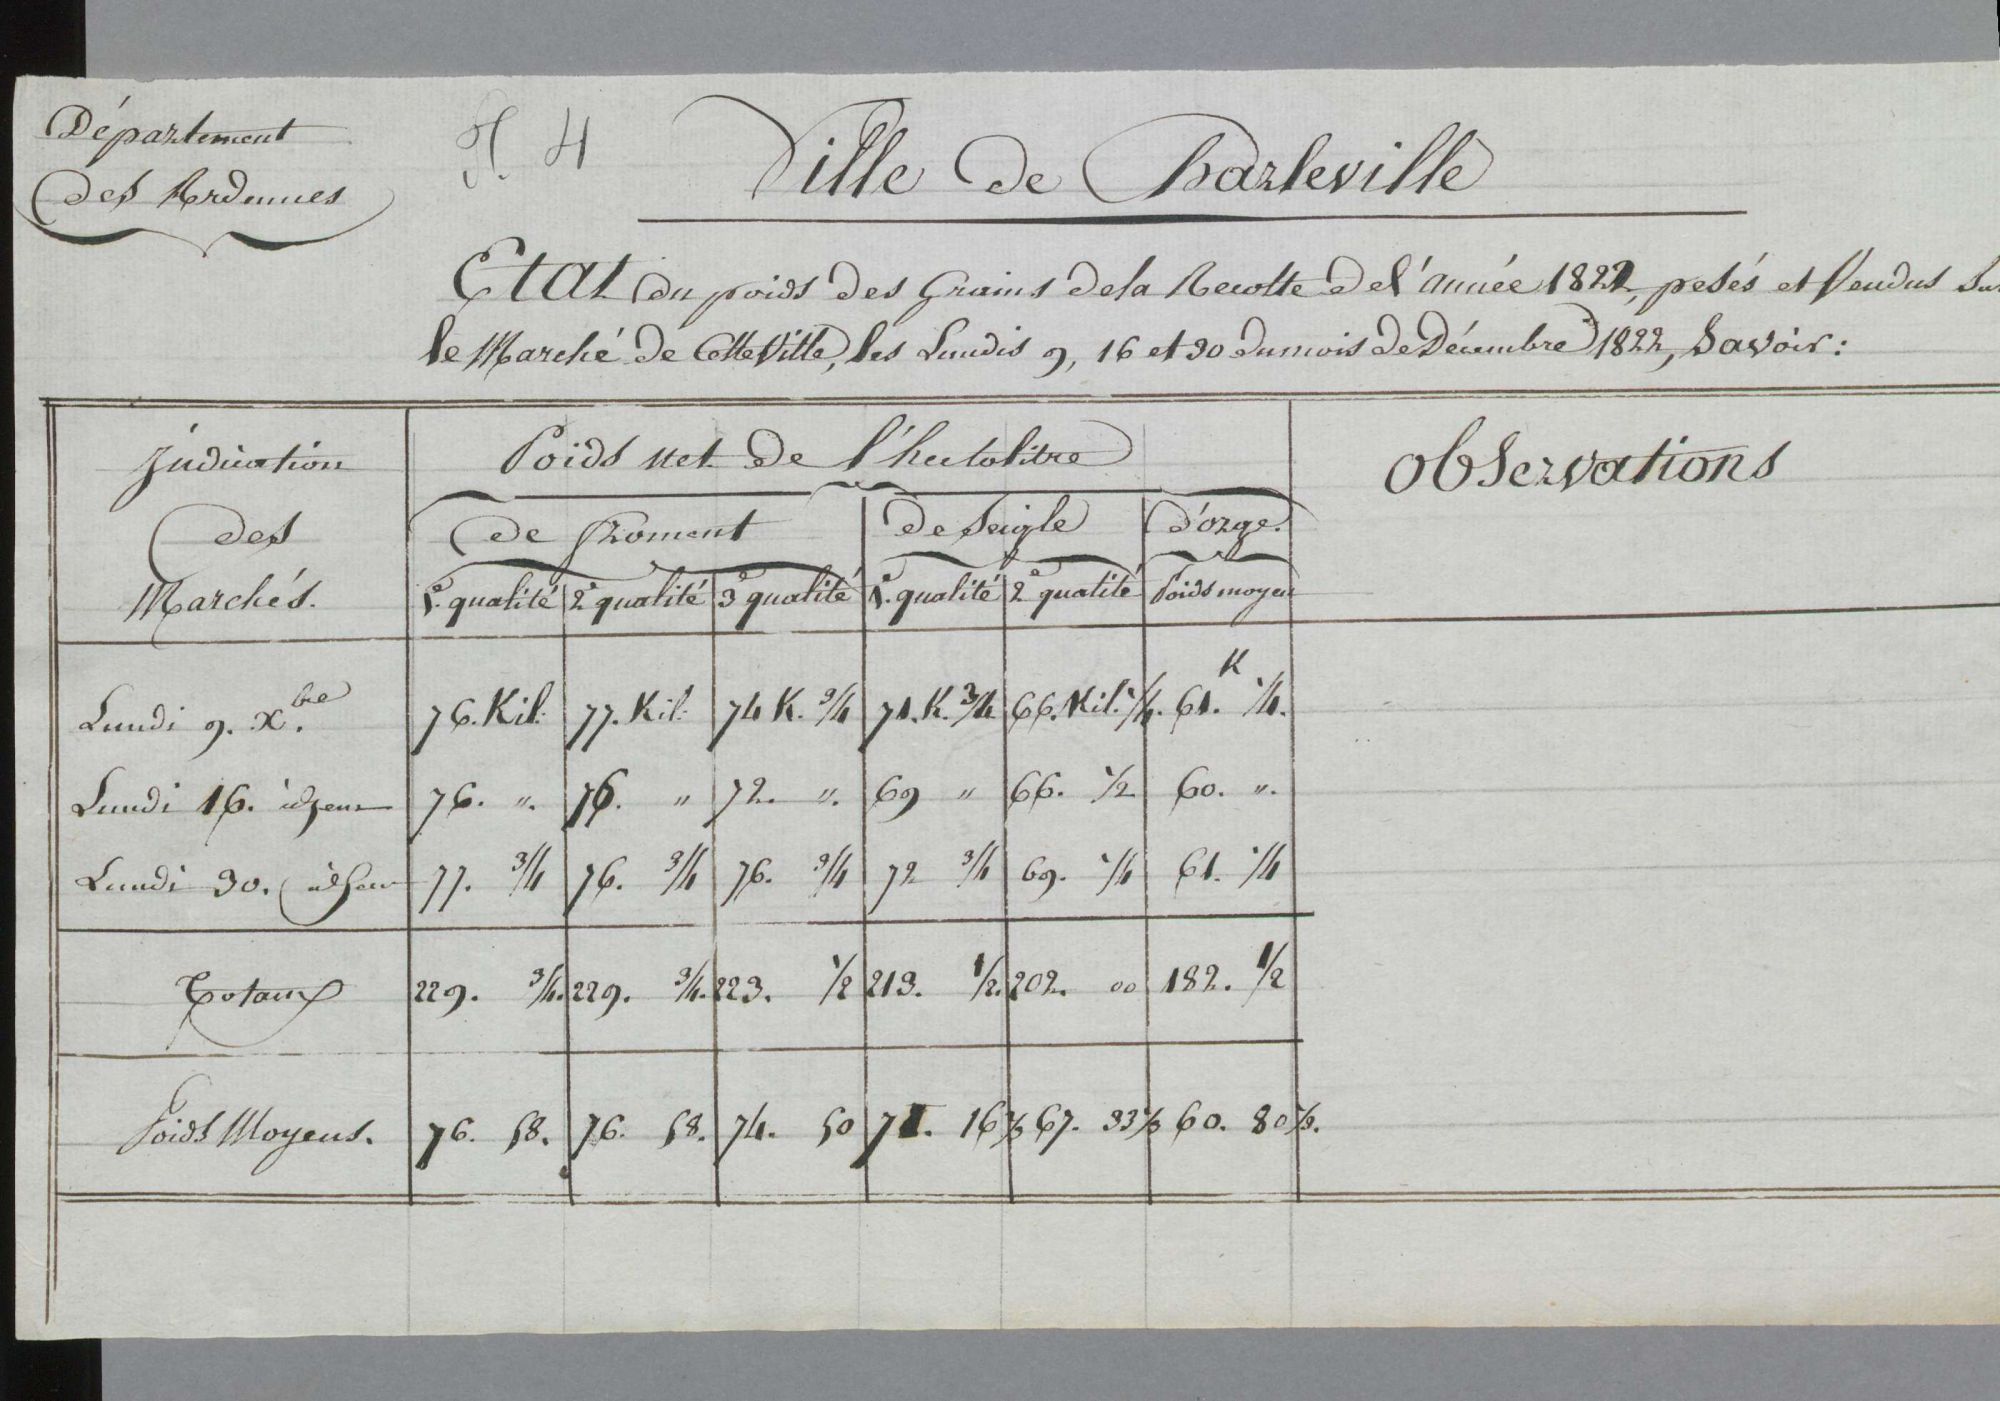 Département
des Ardennes
N. 4
Ville de Charleville
Etat du poids des Grains de la Recolte de l'année 1822, pesés et Vendus Sur
le Marché de Cette Ville, les Lundis 9, 16 et 30 du mois de Décembre 1822, Savoir:
Indication
des
Marchés.
Poids net de l'hectolitre
Observations
de froment
de Seigle
d'orge.
1e. qualité 2e qualité 3e qualité 1e. qualité 2e qualité Poids moyen
Lundi 9. Xbre. 76. Kil: 77. Kil: 74 K. 3/4 71. K. 3/4 66. Kil. 1/4. 61. K 1/4.
Lundi 16. idem 76. ". 76. " 72. ". 69 " 66. 1/2 60. ".
Lundi 30. idem 77. 3/4 76. 3/4 76. 3/4 72 3/4 69. 1/4 61. 1/4
Totaux 229. 3/4. 229. 3/4. 223. 1/2 213. 1/2. 202. 00 182. 1/2
Poids Moyens. 76. 58. 76. 58. 74. 50 71. 16 2/3 67. 33 1/3 60. 80 1/3.